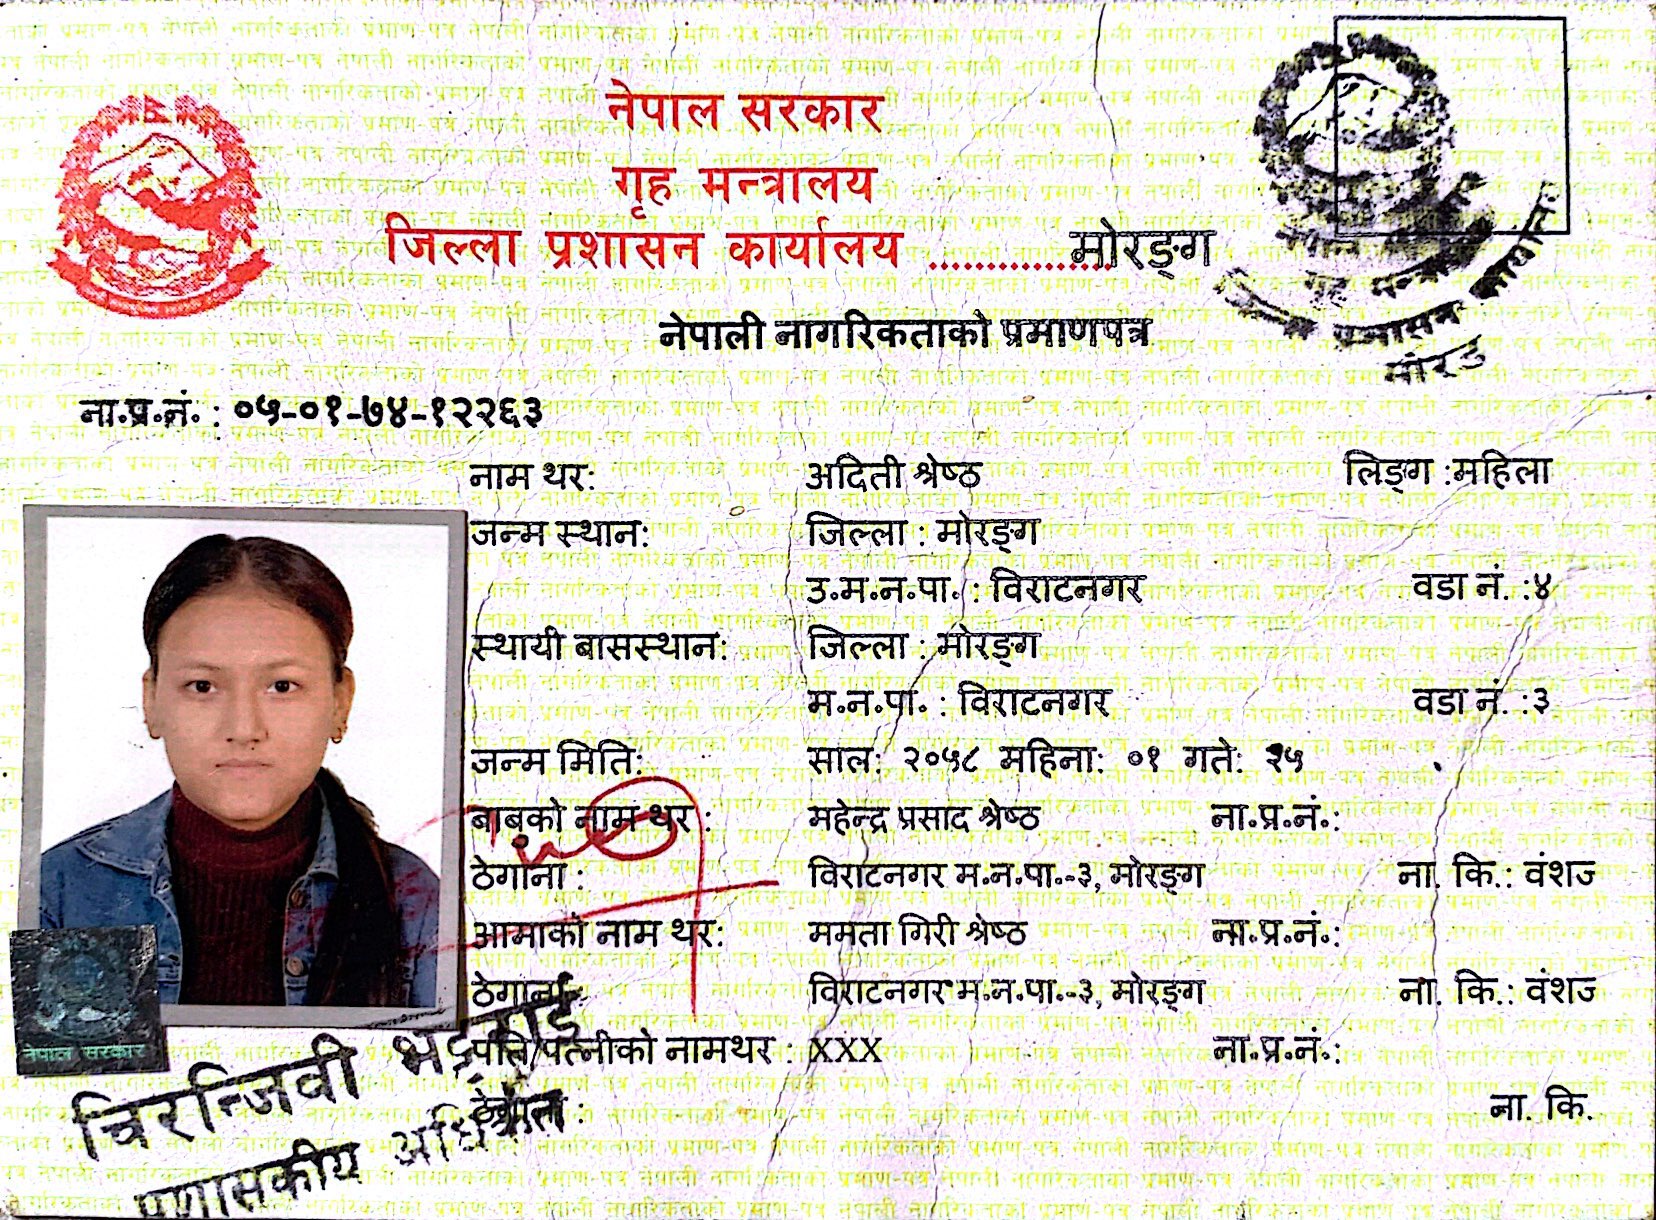 नेपाल सरकार
गृह मन्त्रालय
जिल्ला प्रशासन कार्यालय .................. मोरङ्ग
नेपाली नागरिकताको प्रमाणपत्र
ना.प्र.नं. : ०५-०१-७४-१२२६३
नाम थर: अदिती श्रेष्ठ लिङ्ग :महिला
जन्म स्थान: जिल्ला : मोरङ्ग
उ.म.न.पा. : विराटनगर वडा नं. :४
स्थायी बासस्थान: जिल्ला : मोरङ्ग
म.न.पा. : विराटनगर वडा नं. :३
जन्म मिति: साल: २०५८ महिना: ०१ गते:
बाबुको नाम थर : महेन्द्र प्रसाद श्रेष्ठ ना.प्र.नं.:
ठेगाना : विराटनगर म.न.पा.-३, मोरङ्ग ना. कि.: वंशज
आमाको नाम थर: ममता गिरी श्रेष्ठ ना.प्र.नं.:
ठेगाना विराटनगर म.न.पा.-३, मोरङ्ग ना. कि.: वंशज
पति/पत्नीको नामथर : XXX ना.प्र.नं.:
ठेगाना : ना. कि.
नेपाल सरकार
चिरन्जिवी
प्रशासकीय अधिकृत